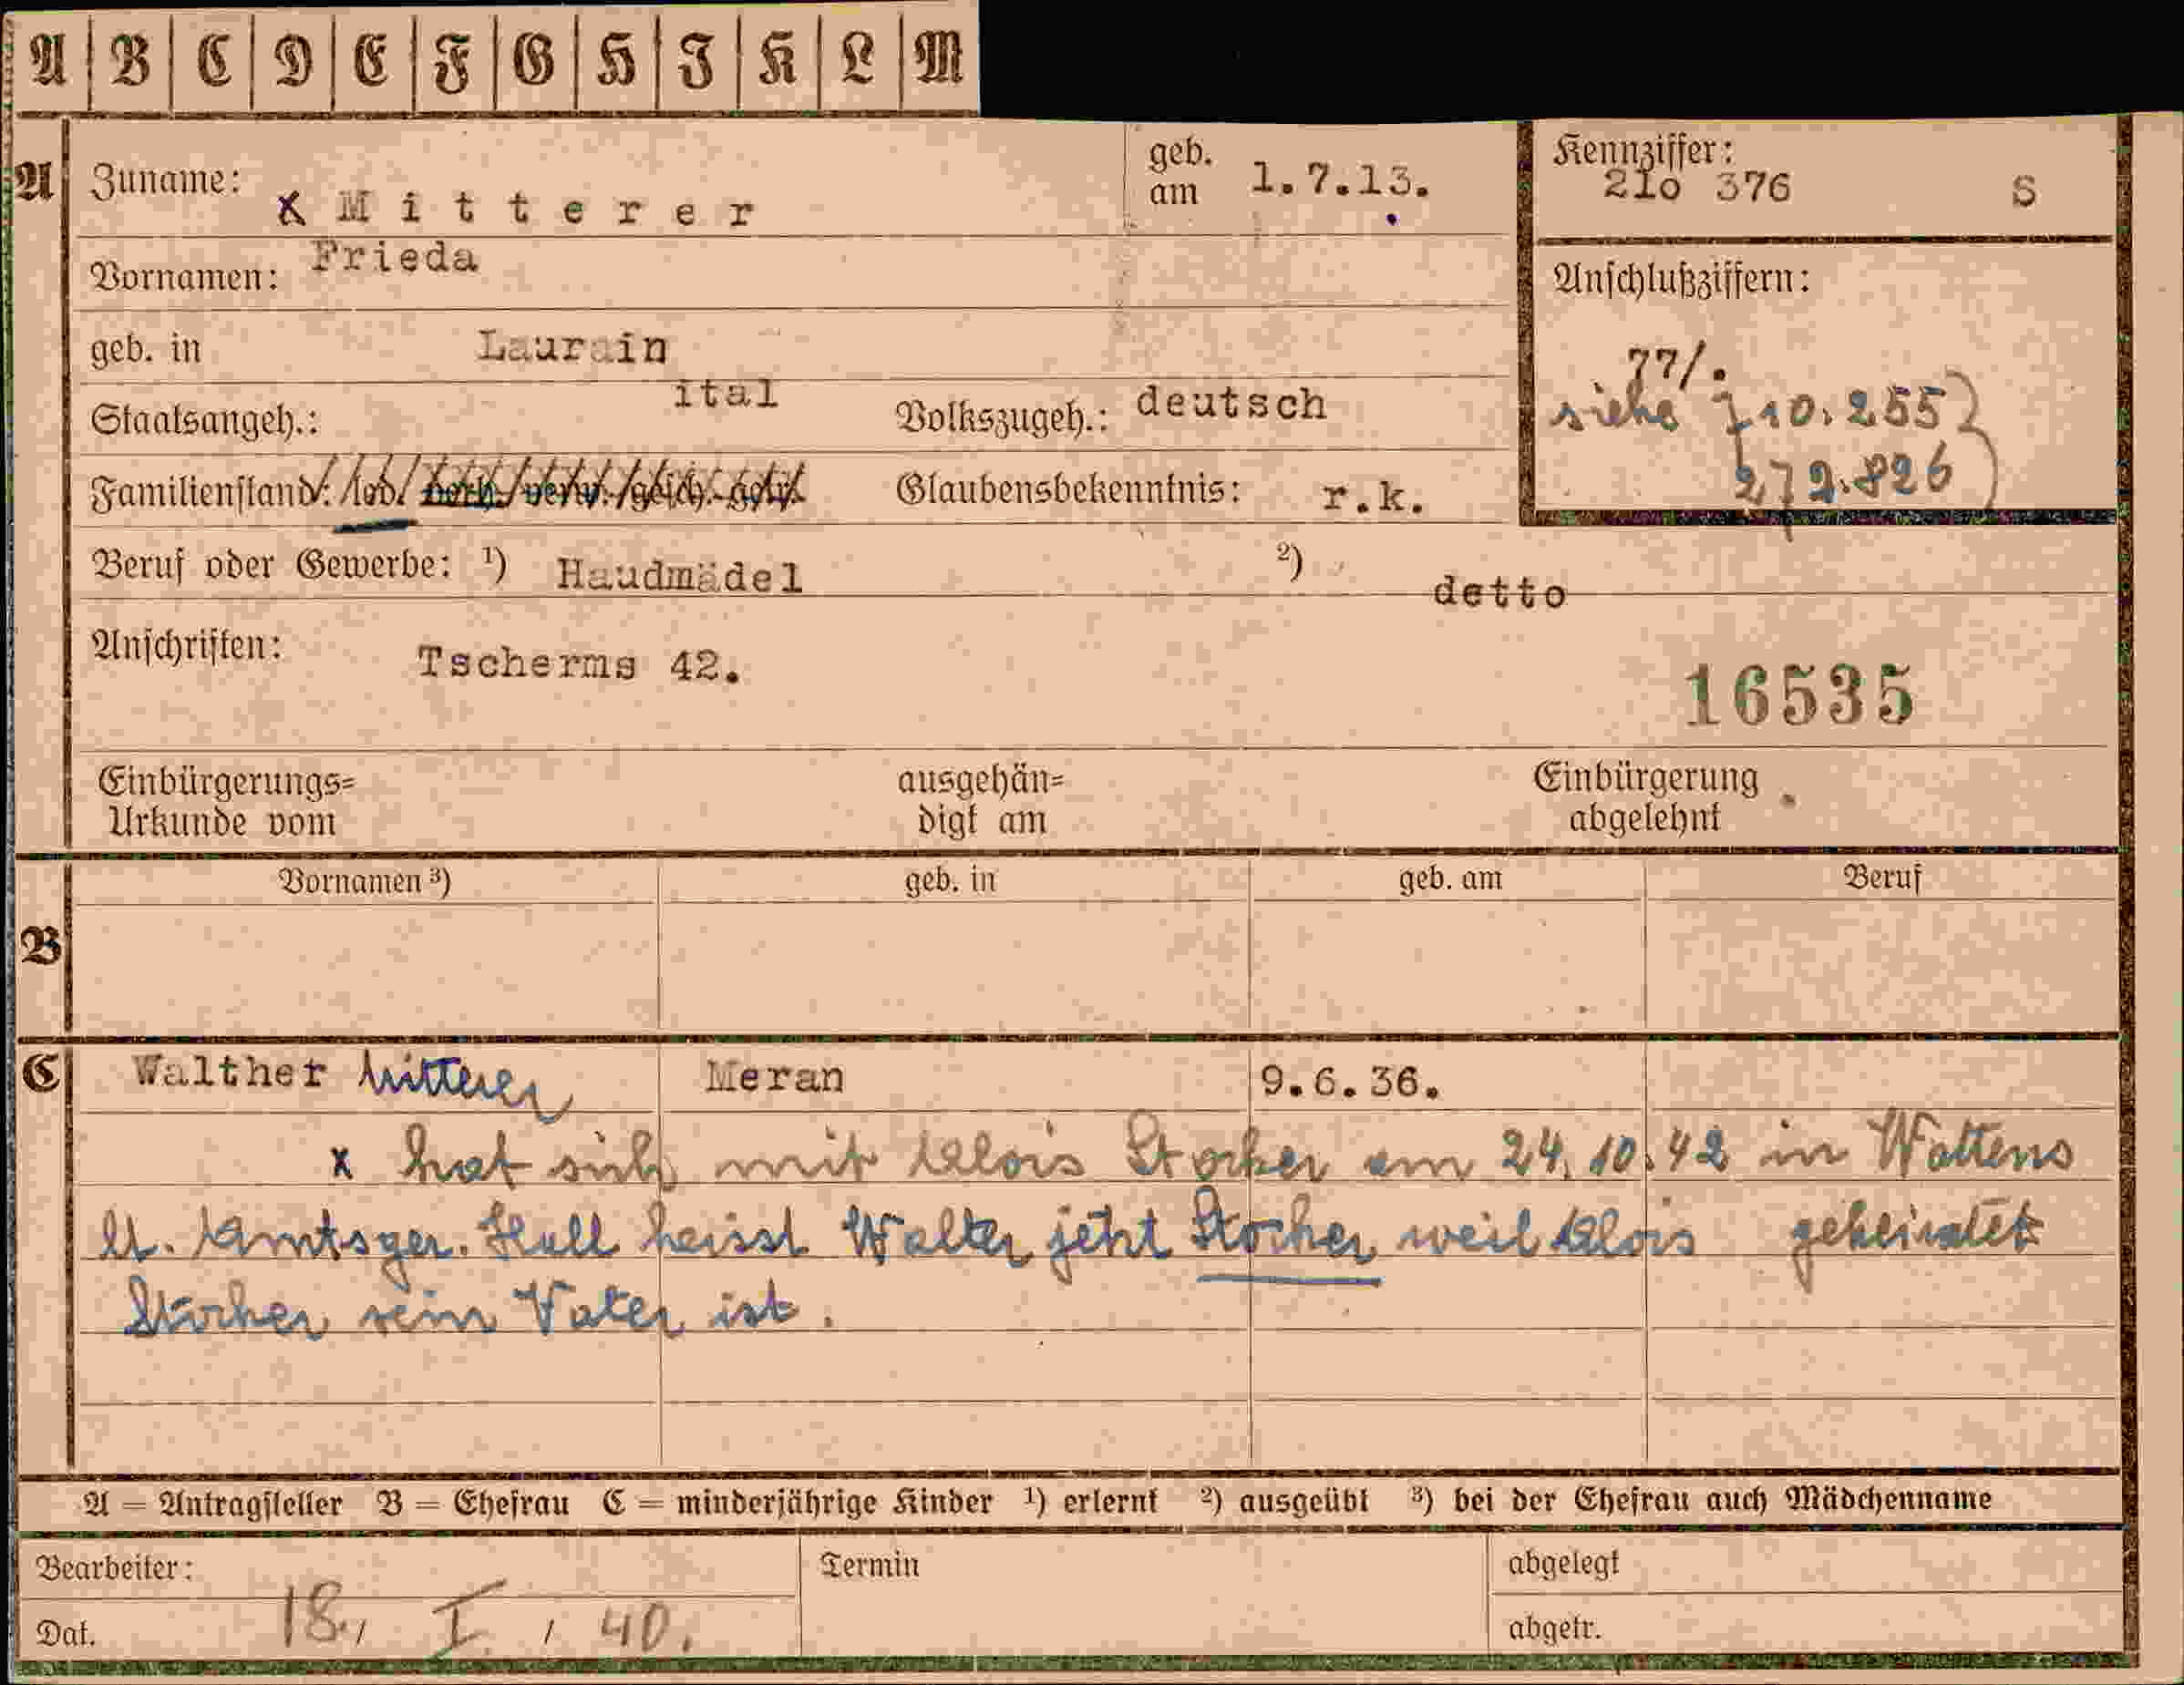 A B C D E F G H J K L M
A Zuname: x M i t t e r e r geb. am 1.7.13. Kennziffer: 21o 376 S
Vornamen: Frieda
Anschlußziffern:
geb. in Laurein
77/.
Staatsangeh.: ital Volkszugeh.: deutsch
siehe 210.255
Familienstand: led. verh. verw. gesch. getr. Glaubensbekenntnis: r.k.
272.826
Beruf oder Gewerbe: ¹) Haudmädel ²) detto
Anschriften: Tscherms 42.
16535
Einbürgerungs=
Urkunde vom
ausgehän=
digt am
Einbürgerung
abgelehnt
Vornamen ³) geb. in geb. am Beruf
B
C Walther Mitterer Meran 9.6.36.
x hat sich mit Alois Stocker am 24.10.42 in Wattens
geheiratet
lt. Amtsger. Hall heisst Walter jetzt Stocker weil Alois
Stocker sein Vater ist.
A = Antragsteller B = Ehefrau C = minderjährige Kinder ¹) erlernt ²) ausgeübt ³) bei der Ehefrau auch Mädchenname
Bearbeiter: Termin abgelegt
Dat. 18./ I. / 40. abgetr.